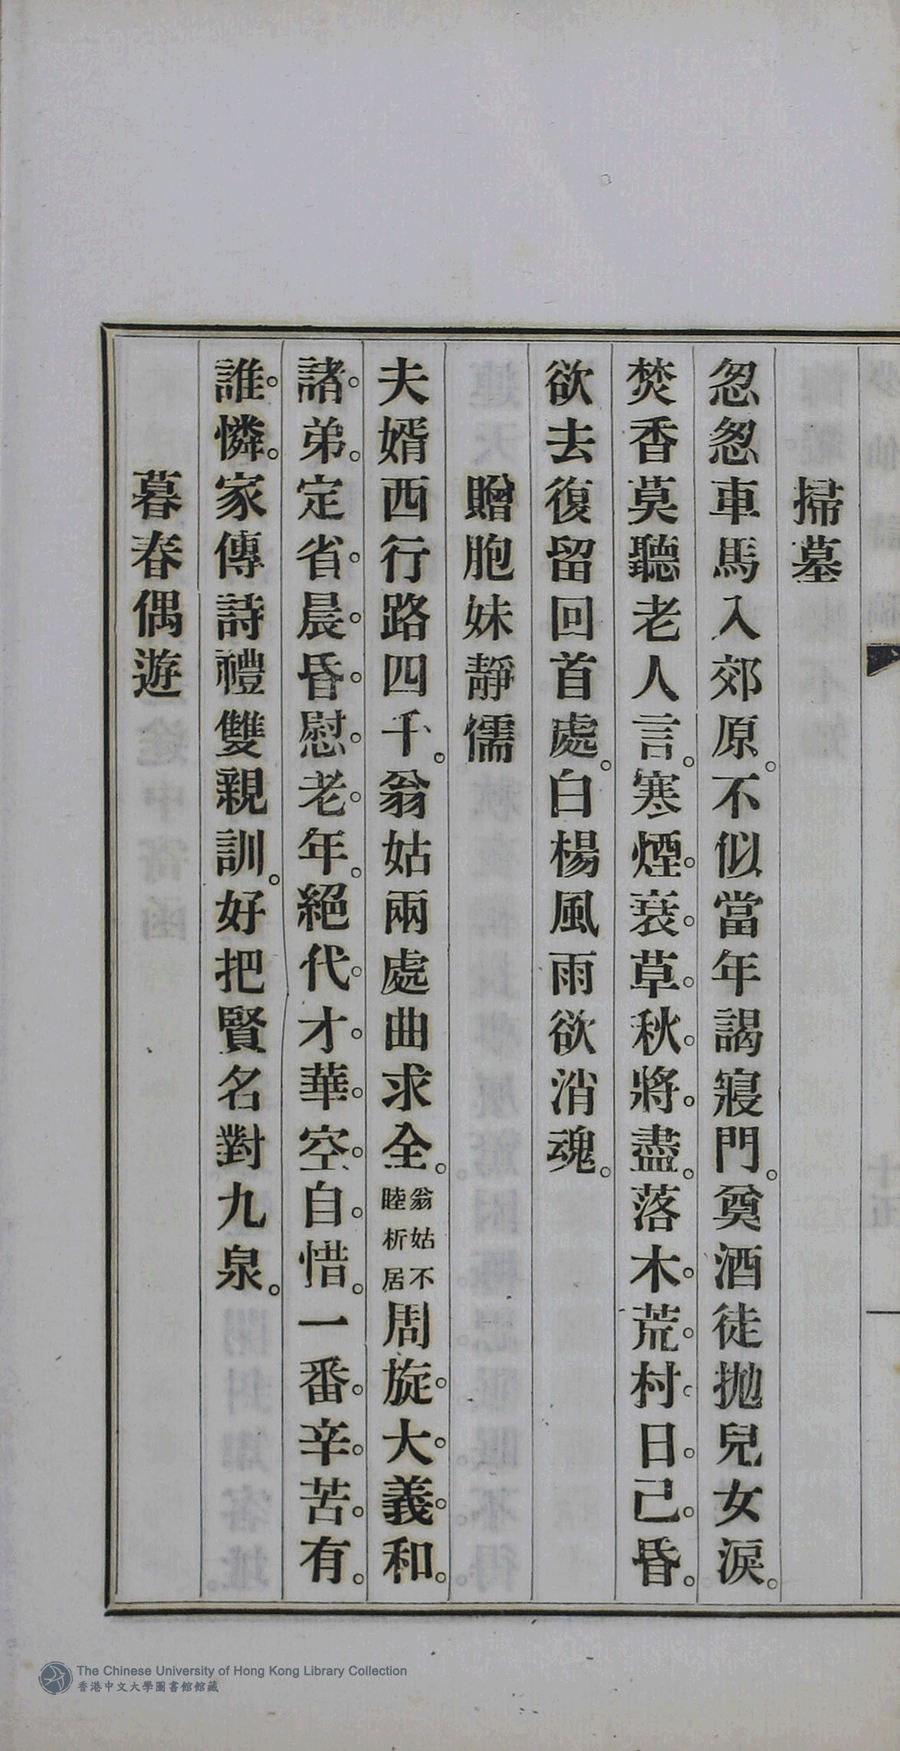 掃墓
怱怱車馬入郊原。不似當年謁寢門。奠酒徒拋兒女淚。
焚香莫聽老人言。寒煙衰草秋將盡。落木荒村日己昏。
欲去復留回首處。白楊風雨欲消魂。
贈胞妹靜儒
夫婿西行路四千。翁姑兩處曲求全。翁姑不睦析居周旋大義和
諸弟。定省晨昏慰老年。絕代才華空自惜。一番辛苦有
誰憐。家傳詩禮雙親訓。好把賢名對九泉。
暮春偶遊
The Chinese University of Hong Kong Library Collection
香港中文大學圖書館館藏